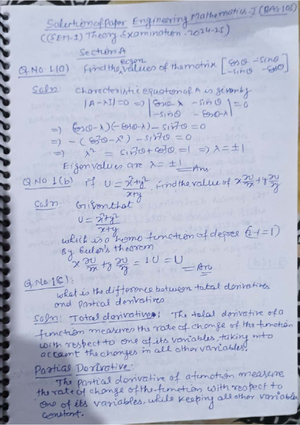 Solution of Paper Engineering Mathematics-I (BAS 103)
((SEM-I) Theory Examination-2024-25)
Section A
Q.No.1(a) Find the eigen values of the matrix [cosθ -sinθ
-sinθ -cosθ]
Soln. Characteristic equation of A is given by
|A-λI|=0 => |cosθ-λ -sinθ| = 0
-sinθ -cosθ-λ
=> (cosθ-λ)(-cosθ-λ)-sin²θ=0
=> -(cos²θ-λ²)-sin²θ=0
=> λ² = sin²θ+cos²θ=1 => λ=±1
Eigen values are λ=±1 Ans
Q.No 1(b) If U = x²+y²/x+y find the value of x ∂u/∂x + y ∂u/∂y
Soln. Given that
U = x²+y²/x+y
which is a homo function of degree (2-1=1)
By Euler's theorem
x ∂u/∂x + y ∂u/∂y = 1U = U Ans
Q.No.1(c):
What is the difference between total derivatives
and Partial derivatives
Soln: Total derivative: The total derivative of a
function measures the rate of change of the function
with respect to one of its variables, taking into
account the changes in all other variables.
Partial Derivative:
The partial derivative of a function measure
the rate of change of the function with respect to
one of its variables, while keeping all other variables
constant.